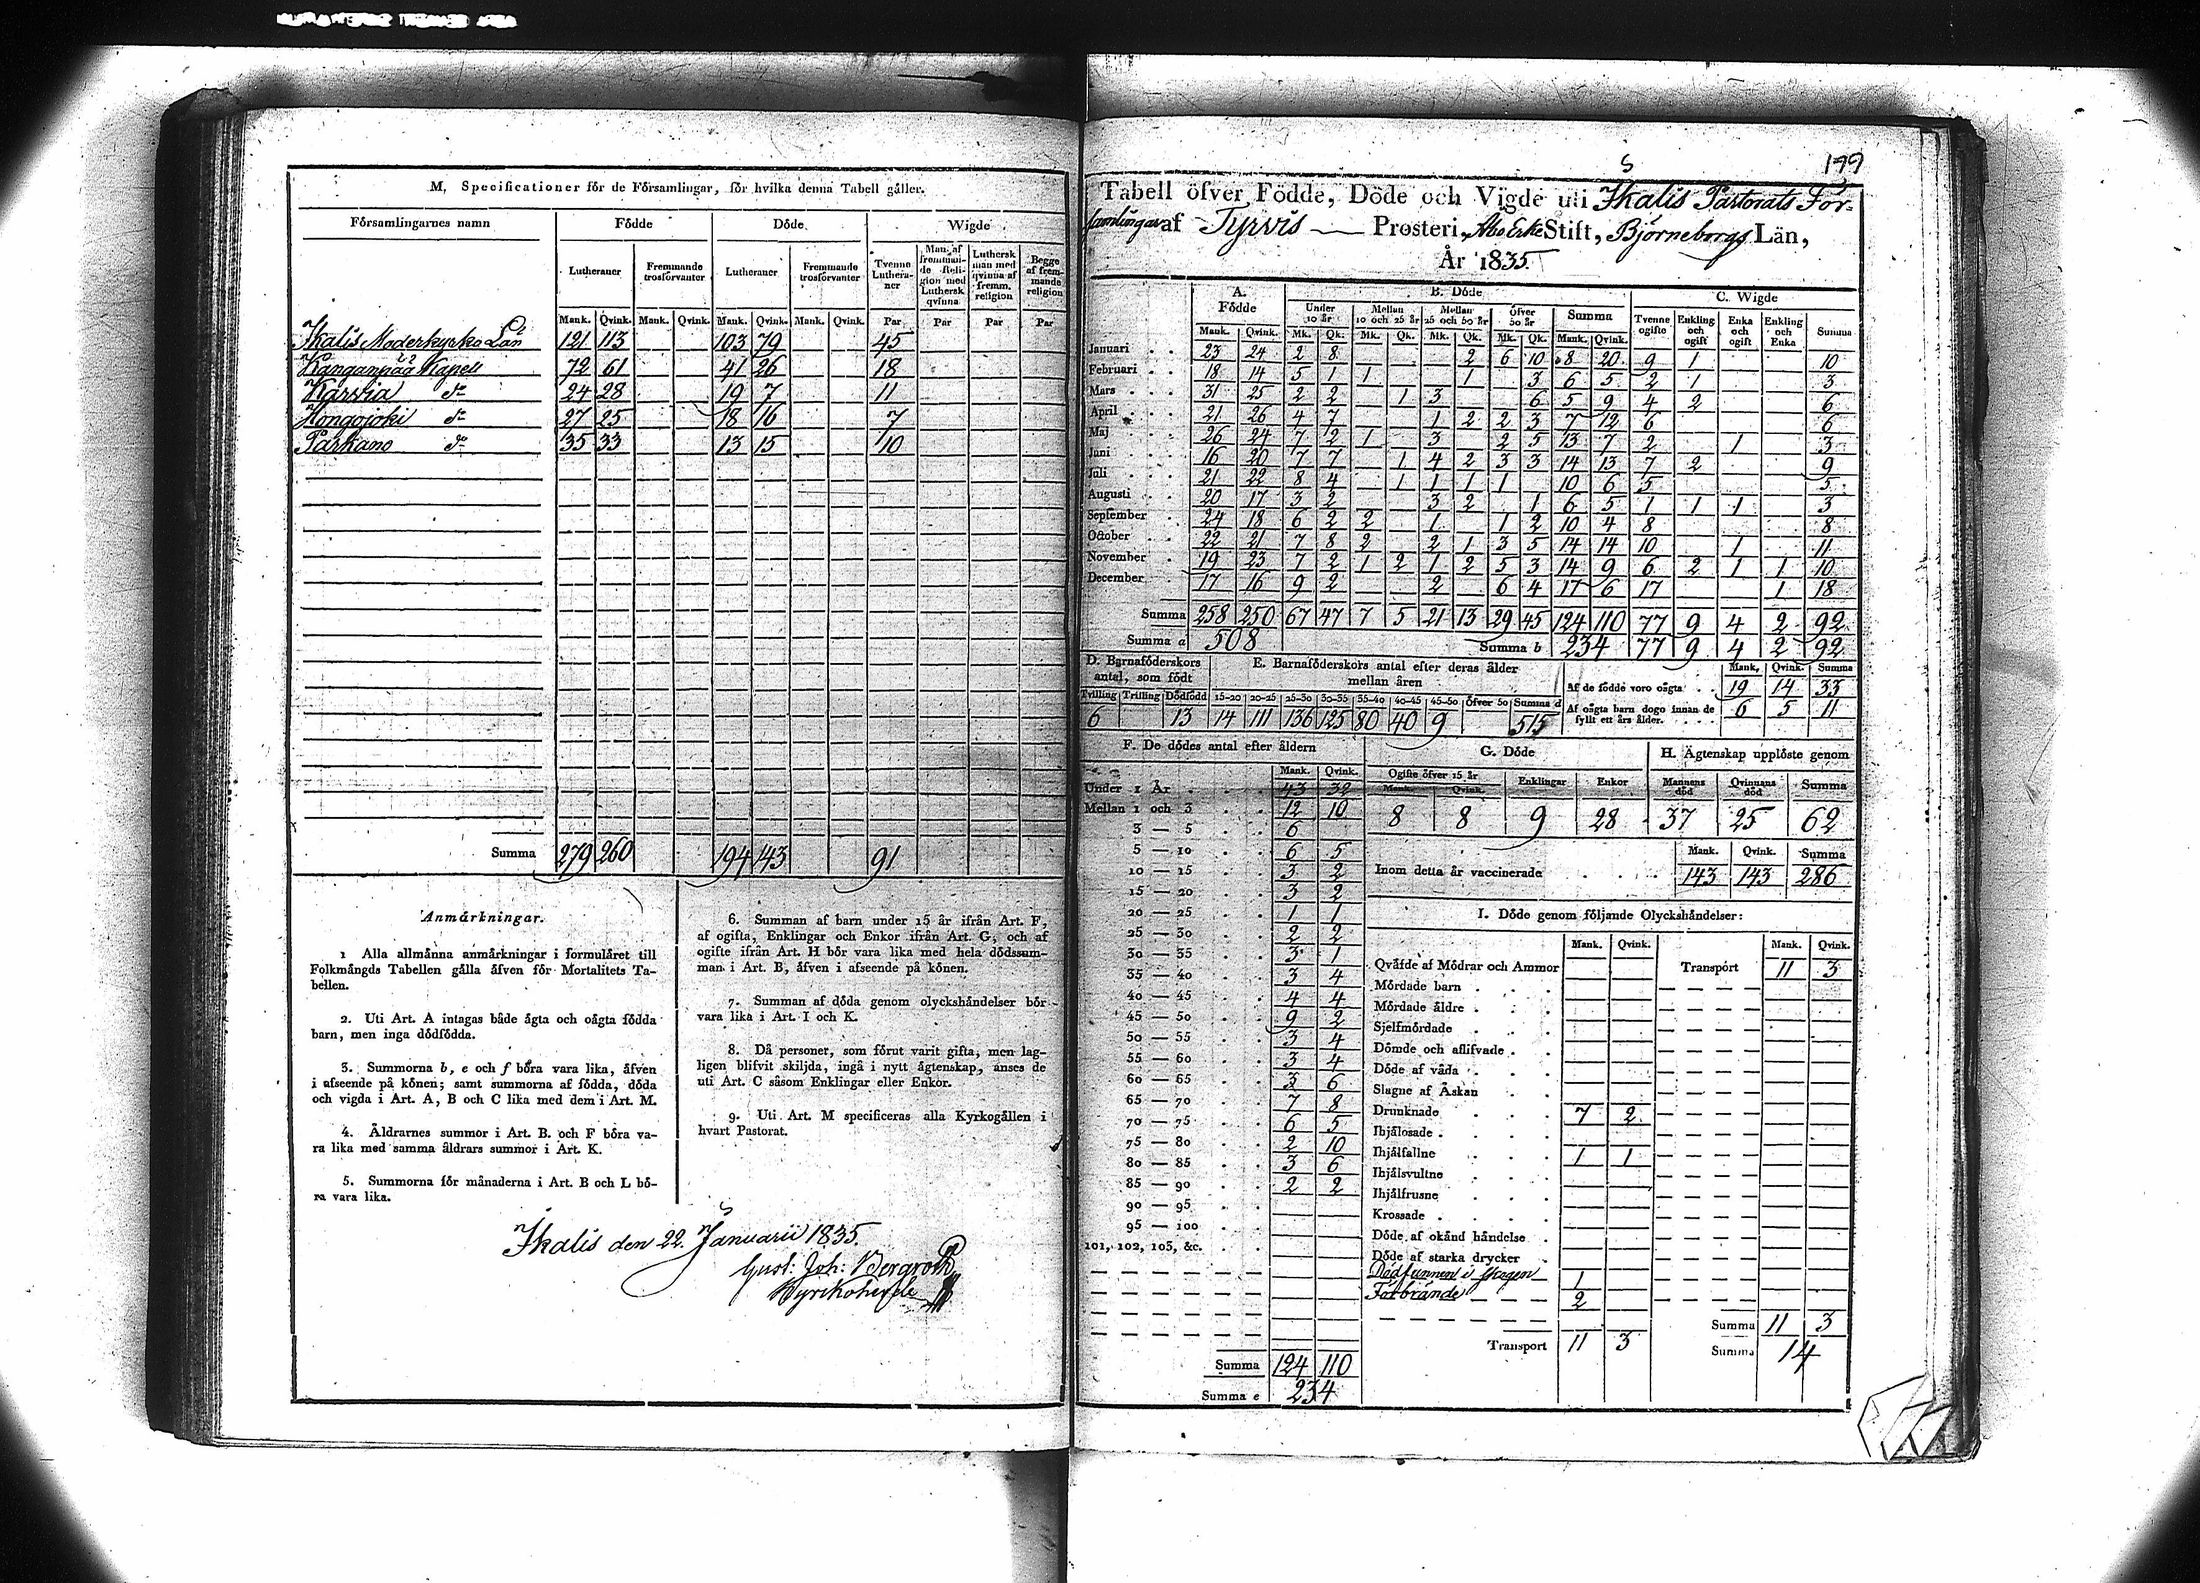 M. Specificationer för de Församlingar, för hvilka denna Tabell gäller.
Församlingarnes namn Födde Döde Wigde
Lutheraner Fremmande trosförvanter Lutheraner Fremmande trosförvanter Tvenne Lutheraner Man af fremmande Religion med Luthersk qvinna Luthersk man med qvinna af fremm. religion Begge af fremmande religion
Mank. Qvink. Mank. Qvink. Mank. Qvink. Mank. Qvink. Par Par Par Par
Ikalis Moderkyrko 121 113 103 79 45
Kanganpää Kapell 72 61 41 26 18
Karvia do 24 28 19 7 11
Hongojoki do 27 25 18 16 7
Parkano do 35 33 13 15 10
Summa 279 260 194 143 91
Anmärkningar.
1 Alla allmänna anmärkningar i formuläret till
Folkmängds Tabellen gälla äfven för Mortalitets Ta-
bellen.
2. Uti Art. A intagas både ägta och oägta födda
barn, men inga dödfödda.
3. Summorna b, e och f böra vara lika, äfven
i afseende på könen; samt summorna af födda, döda
och vigda i Art. A, B och C lika med dem i Art. M.
4. Åldrarnes summor i Art. B. och F böra va-
ra lika med samma åldrars summor i Art. K.
5. Summorna för månaderna i Art. B och L bö-
ra vara lika.
6. Summan af barn under 15 år ifrån Art. F,
af ogifta, Enklingar och Enkor ifrån Art. G, och af
ogifte ifrån Art. H bör vara lika med hela dödssum-
man i Art. B, äfven i afseende på könen.
7. Summan af döda genom olyckshändelser bör
vara lika i Art. I och K.
8. Då personer, som förut varit gifta, men lag-
ligen blifvit skiljda, ingå i nytt ägtenskap, anses de
uti Art. C såsom Enklingar eller Enkor.
9. Uti Art. M specificeras alla Kyrkogällen i
hvart Pastorat.
Ikalis den 22. Januarii 1835.
Gust: Joh: Bergroth
Kyrkoherde
199
Tabell öfver Födde, Döde och Vigde uti Ikalis Pastorats För-
samlingar af Tyrvis Prosteri, Åbo Erke Stift, Björneborgs Län,
År 1835.
A. Födde B. Döde C. Wigde
Under 10 år Mellan 10 och 25 år Mellan 25 och 50 år Öfver 50 år Summa Tvenne ogifte Enkling och ogift Enka och ogift Enkling och Enka Summa
Mank. Qvink. Mk. Qk. Mk. Qk. Mk. Qk. Mk. Qk. Mank. Qvink.
Januari 23 24 2 8 2 6 10 8 20 9 1 10
Februari 18 14 5 1 1 1 3 6 5 2 1 3
Mars 31 25 2 2 1 3 6 5 9 4 2 6
April 21 26 4 7 1 2 2 3 7 12 6 6
Maj 26 24 7 2 1 3 2 5 13 7 2 1 3
Juni 16 20 7 7 1 4 2 3 3 14 13 7 2 9
Juli 21 22 8 4 1 1 1 1 10 6 5 5
Augusti 20 17 3 2 3 2 1 6 5 1 1 1 3
September 24 18 6 2 2 1 1 2 10 4 8 8
October 22 21 7 8 2 2 1 3 5 14 14 10 1 11
November 19 23 7 2 1 2 1 2 5 3 14 9 6 2 1 1 10
December 17 16 9 2 2 6 4 17 6 17 1 18
Summa 258 250 67 47 7 5 21 13 29 45 124 110 77 9 4 2 92
Summa a 508 Summa b 234 77 9 4 2 92
D. Barnaföderskors antal, som födt E. Barnaföderskors antal efter deras ålder mellan åren Mank. Qvink. Summa
Tvilling Trilling Dödfödd 15-20 20-25 25-30 30-35 35-40 40-45 45-50 öfver 50 Summa d
6 13 14 111 136 125 80 40 9 515
Af de födde voro oägta 19 14 33
Af oägta barn dogo innan de fyllt ett års ålder. 6 5 11
F. De dödes antal efter åldern
Mank. Qvink.
Under 1 År 43 32
Mellan 1 och 3 12 10
3 — 5 6
5 — 10 6 5
10 — 15 3 2
15 — 20 3 2
20 — 25 1 1
25 — 30 2 2
30 — 35 3 1
35 — 40 3 4
40 — 45 4 4
45 — 50 9 2
50 — 55 3 4
55 — 60 3 4
60 — 65 3 6
65 — 70 7 8
70 — 75 6 5
75 — 80 2 10
80 — 85 3 6
85 — 90 2 2
90 — 95
95 — 100
101, 102, 103, &c.
Summa 124 110
Summa e 234
G. Döde H. Ägtenskap upplöste genom
Ogifte öfver 15 år Enklingar Enkor Mannens död Qvinnans död Summa
Mank. Qvink.
8 8 9 28 37 25 62
Mank. Qvink. Summa
Inom detta år vaccinerade 143 143 286
I. Döde genom följande Olyckshändelser:
Mank. Qvink. Mank. Qvink.
Qväfde af Mödrar och Ammor Transport 11 3
Mördade barn
Mördade äldre
Sjelfmördade
Dömde och aflifvade
Döde af våda
Slagne af Åskan
Drunknade 7 2
Ihjälosade
Ihjälfallne 1 1
Ihjälsvultne
Ihjälfrusne
Krossade
Döde af okänd händelse
Döde af starka drycker
Dödfunnen i skogen 1
Förbrände 2
Summa 11 3
Transport 11 3 Summa 14